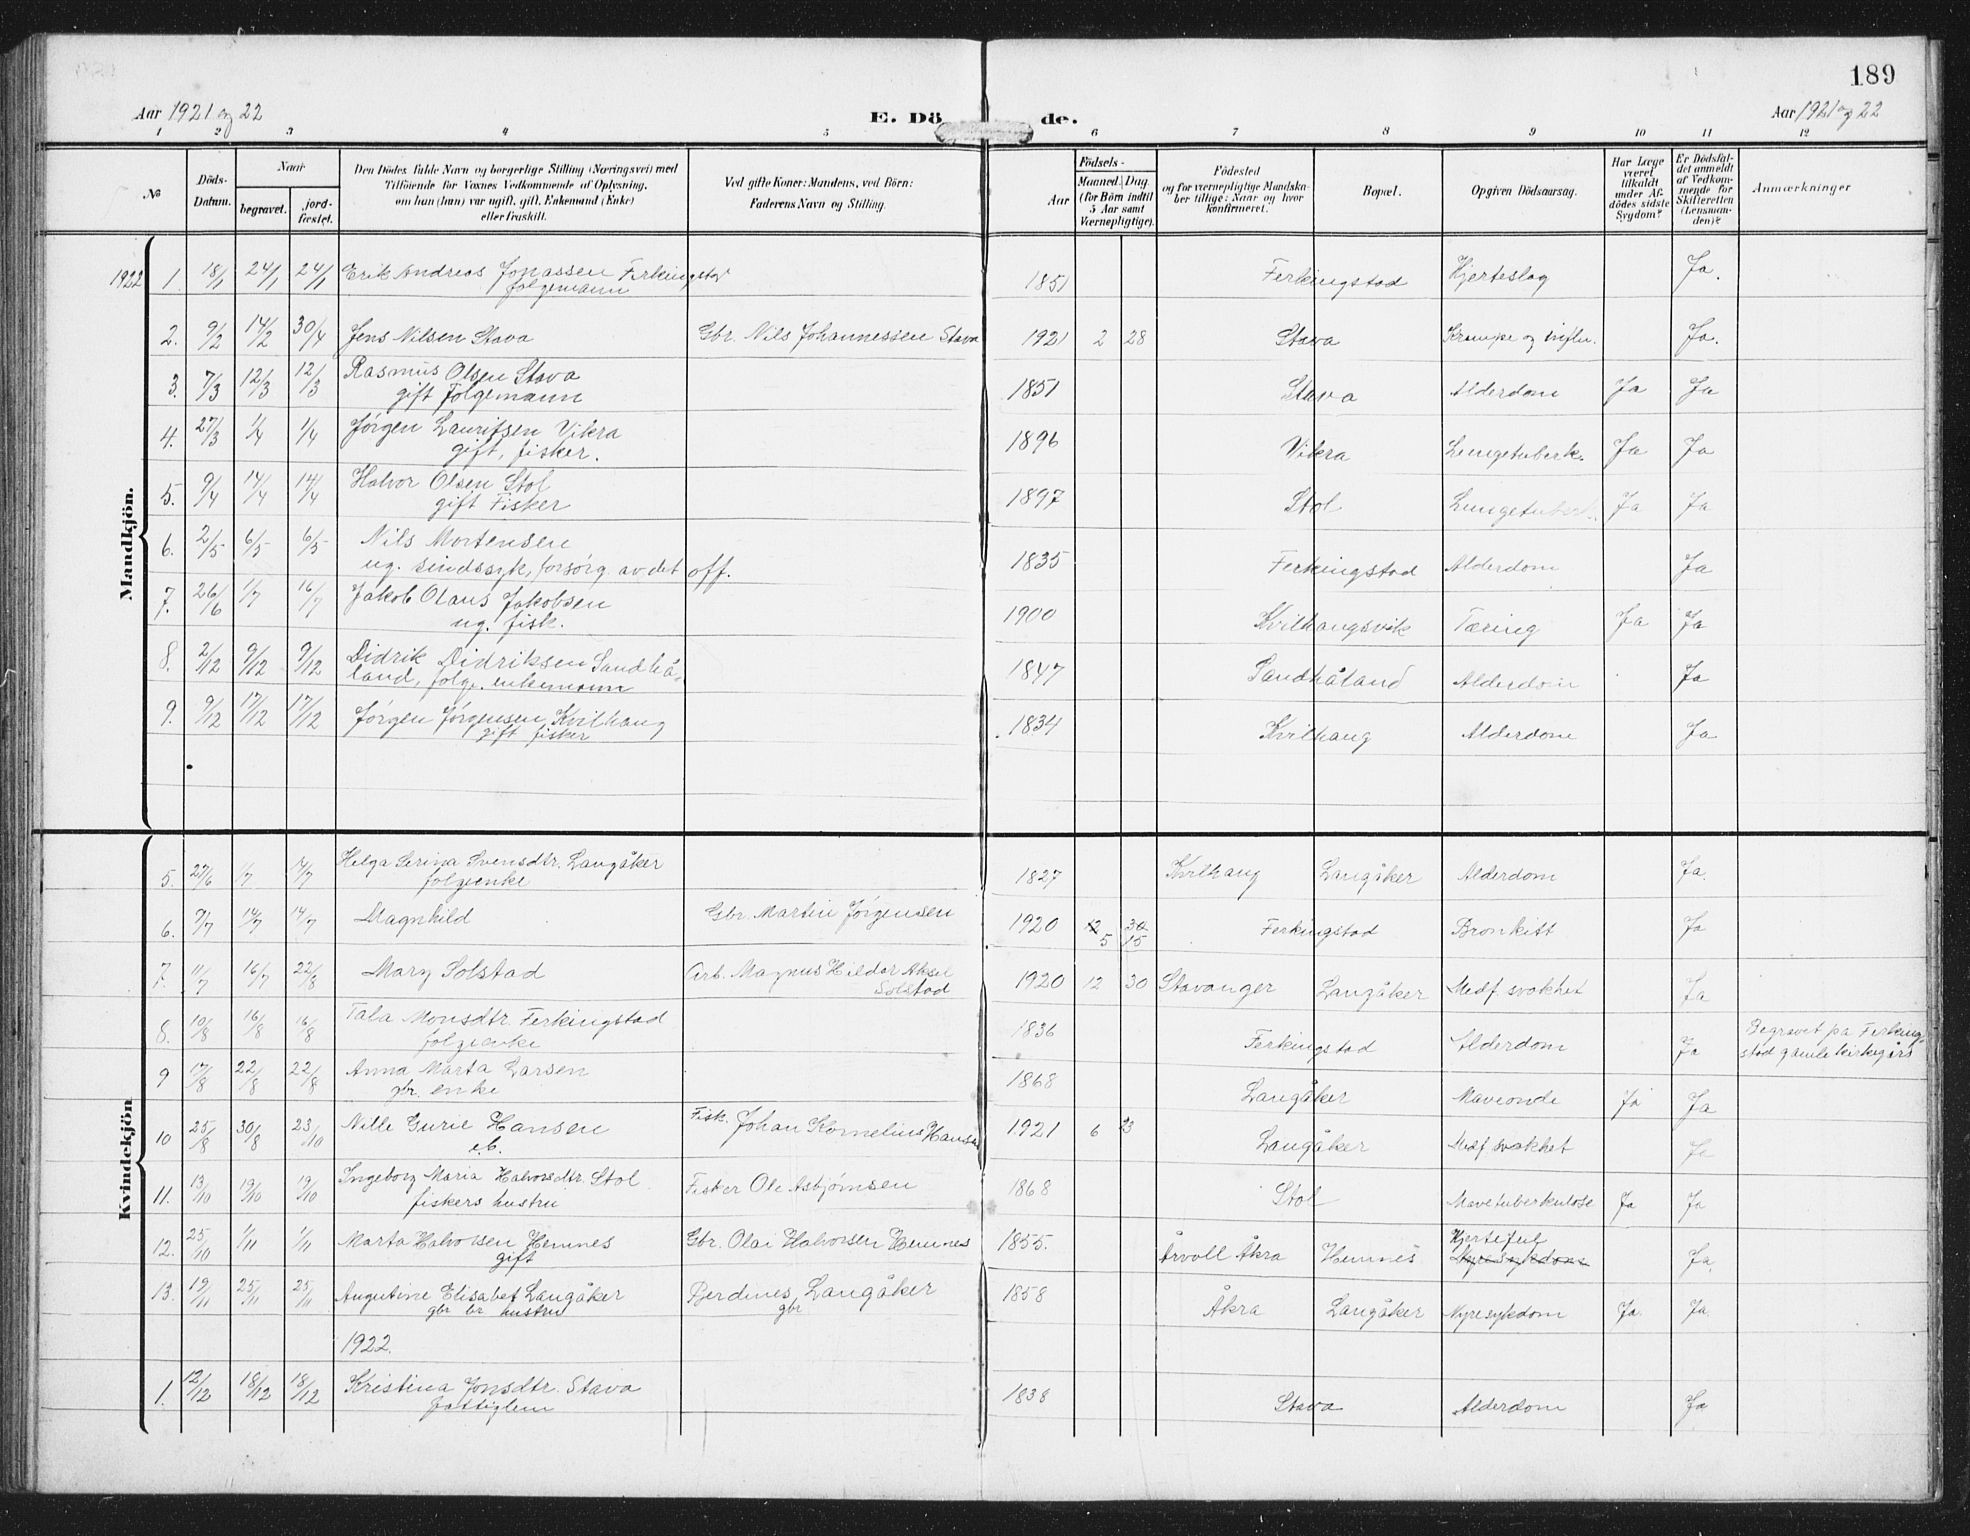 189
Aar 1921 og 22 E. Dö de. Aar 1921 og 22
1 2 3 4 5 6 7 8 9 10 11 12
No Döds-Datum. Naar begravet. jord-fæstet. Den Dödes fulde Navn og borgerlige Stilling (Næringsvei) med Tilföiende for Voxnes Vedkommende af Oplysning, om han (hun) var ugift, gift, Enkemand (Enke) eller fraskilt. Ved gifte Koner: Mandens, ved Börn: Faderens Navn og Stilling. Födsels- Aar Maaned. Dag (for Börn indtil 5 Aar samt Værnepligtige). Födested og for værnepligtige Mandskaber tillige: Naar og hvor konfirmeret. Bopæl. Opgiven Dödsaarsag. Har Læge været tilkaldt under Afdödes sidste Sygdom? Er Dödsfaldet anmeldt af Vedkommende for Skifteretten (Lensmanden)? Anmærkninger
Mandkjön.
1922 1. 18/1 24/1 24/1 Erik Andreas Jonassen Ferkingstad 1851 Ferkingstad Hjerteslag Ja.
folgemann
2. 9/2 14/2 30/4 Jens Nilsen Stava Gbr. Nils Johannessen Stava 1921 2 28 Stava Krampe og influ. Ja.
3. 7/3 12/3 12/3 Rasmus Olsen Stava 1851 Stava Alderdom Ja Ja
gift Folgemann
4. 27/3 1/4 1/4 Jórgen Lauritsen Vikra 1896 Vikra Lungetuberk. Ja Ja
gift, fisker.
5. 9/4 14/4 14/4 Halvor Olsen Stol 1897 Stol Lungetuberk. Ja Ja
gift Fisker
6. 2/5 6/5 6/5 Nils Mortensen 1835 Ferkingstad Alderdom Ja
ug. sindssyk, forsórg. av det off.
7. 26/6 1/7 16/7 Jakob Olaus Jakobsen 1900 Kvilhaugsvik Tæring Ja Ja
ug. fisk.
8. 2/12 9/12 9/12 Didrik Didriksen Sandhå- 1847 Sandhåland Alderdom Ja
land, folge. enkemann
9. 9/12 17/12 17/12 Jórgen Jórgensen Kvilhaug 1834 Kvilhaug Alderdom Ja
gift fisker
Kvindekjön
5. 27/6 1/7 17/7 Helga Serina Svensdtr. Langåker 1827 Kvilhaug Langåker Alderdom Ja.
folgeenke
6. 9/7 14/7 14/7 Magnhild Gbr. Martin Jórgensen 1920 12 30 Ferkingstad Bronkitt Ja
5 15
7. 11/7 16/7 22/8 Mary Solstad Arb. Magnus Hildor Aksel 1920 12 30 Stavanger Langåker Medf. svakhet Ja
Solstad
8. 10/8 16/8 16/8 Tala Monsdtr. Ferkingstad 1836 Ferkingstad Alderdom Ja Begravet på Ferking-
folgeenke stad gamle kirkegårs
9 17/8 22/8 22/8 Anna Marta Larsen 1868 Langåker Maveonde Ja Ja
gbr. enke
10 25/8 30/8 23/10 Nille Gurie Hansen Fisk. Johan Kornelius Hansen 1921 6 23 Langåker Medf. svakhet Ja
e.b.
11. 13/10 19/10 19/10 Ingeborg Maria Halvorsdtr. Stol Fisker Ole Asbjørnsen 1868 Stol Mavetuberkulose Ja Ja
fiskers hustru
12. 25/10 1/11 1/11 Marta Halvorsen Hemnes Gbr. Olai Halvorsen Hemnes 1855. Årvoll Åkra Hemnes Hjertefeil Nyresykdom Ja.
gift
13. 19/11 25/11 25/11 Augutine Elisabet Langåker Berdines Langåker 1858 Åkra Langåker Nyresykdom Ja. Ja
gbr br hustru gbr
1922.
1. 12/12 18/12 18/12 Kristina Jonsdtr. Stava 1838 Stava Alderdom Ja
fattiglem